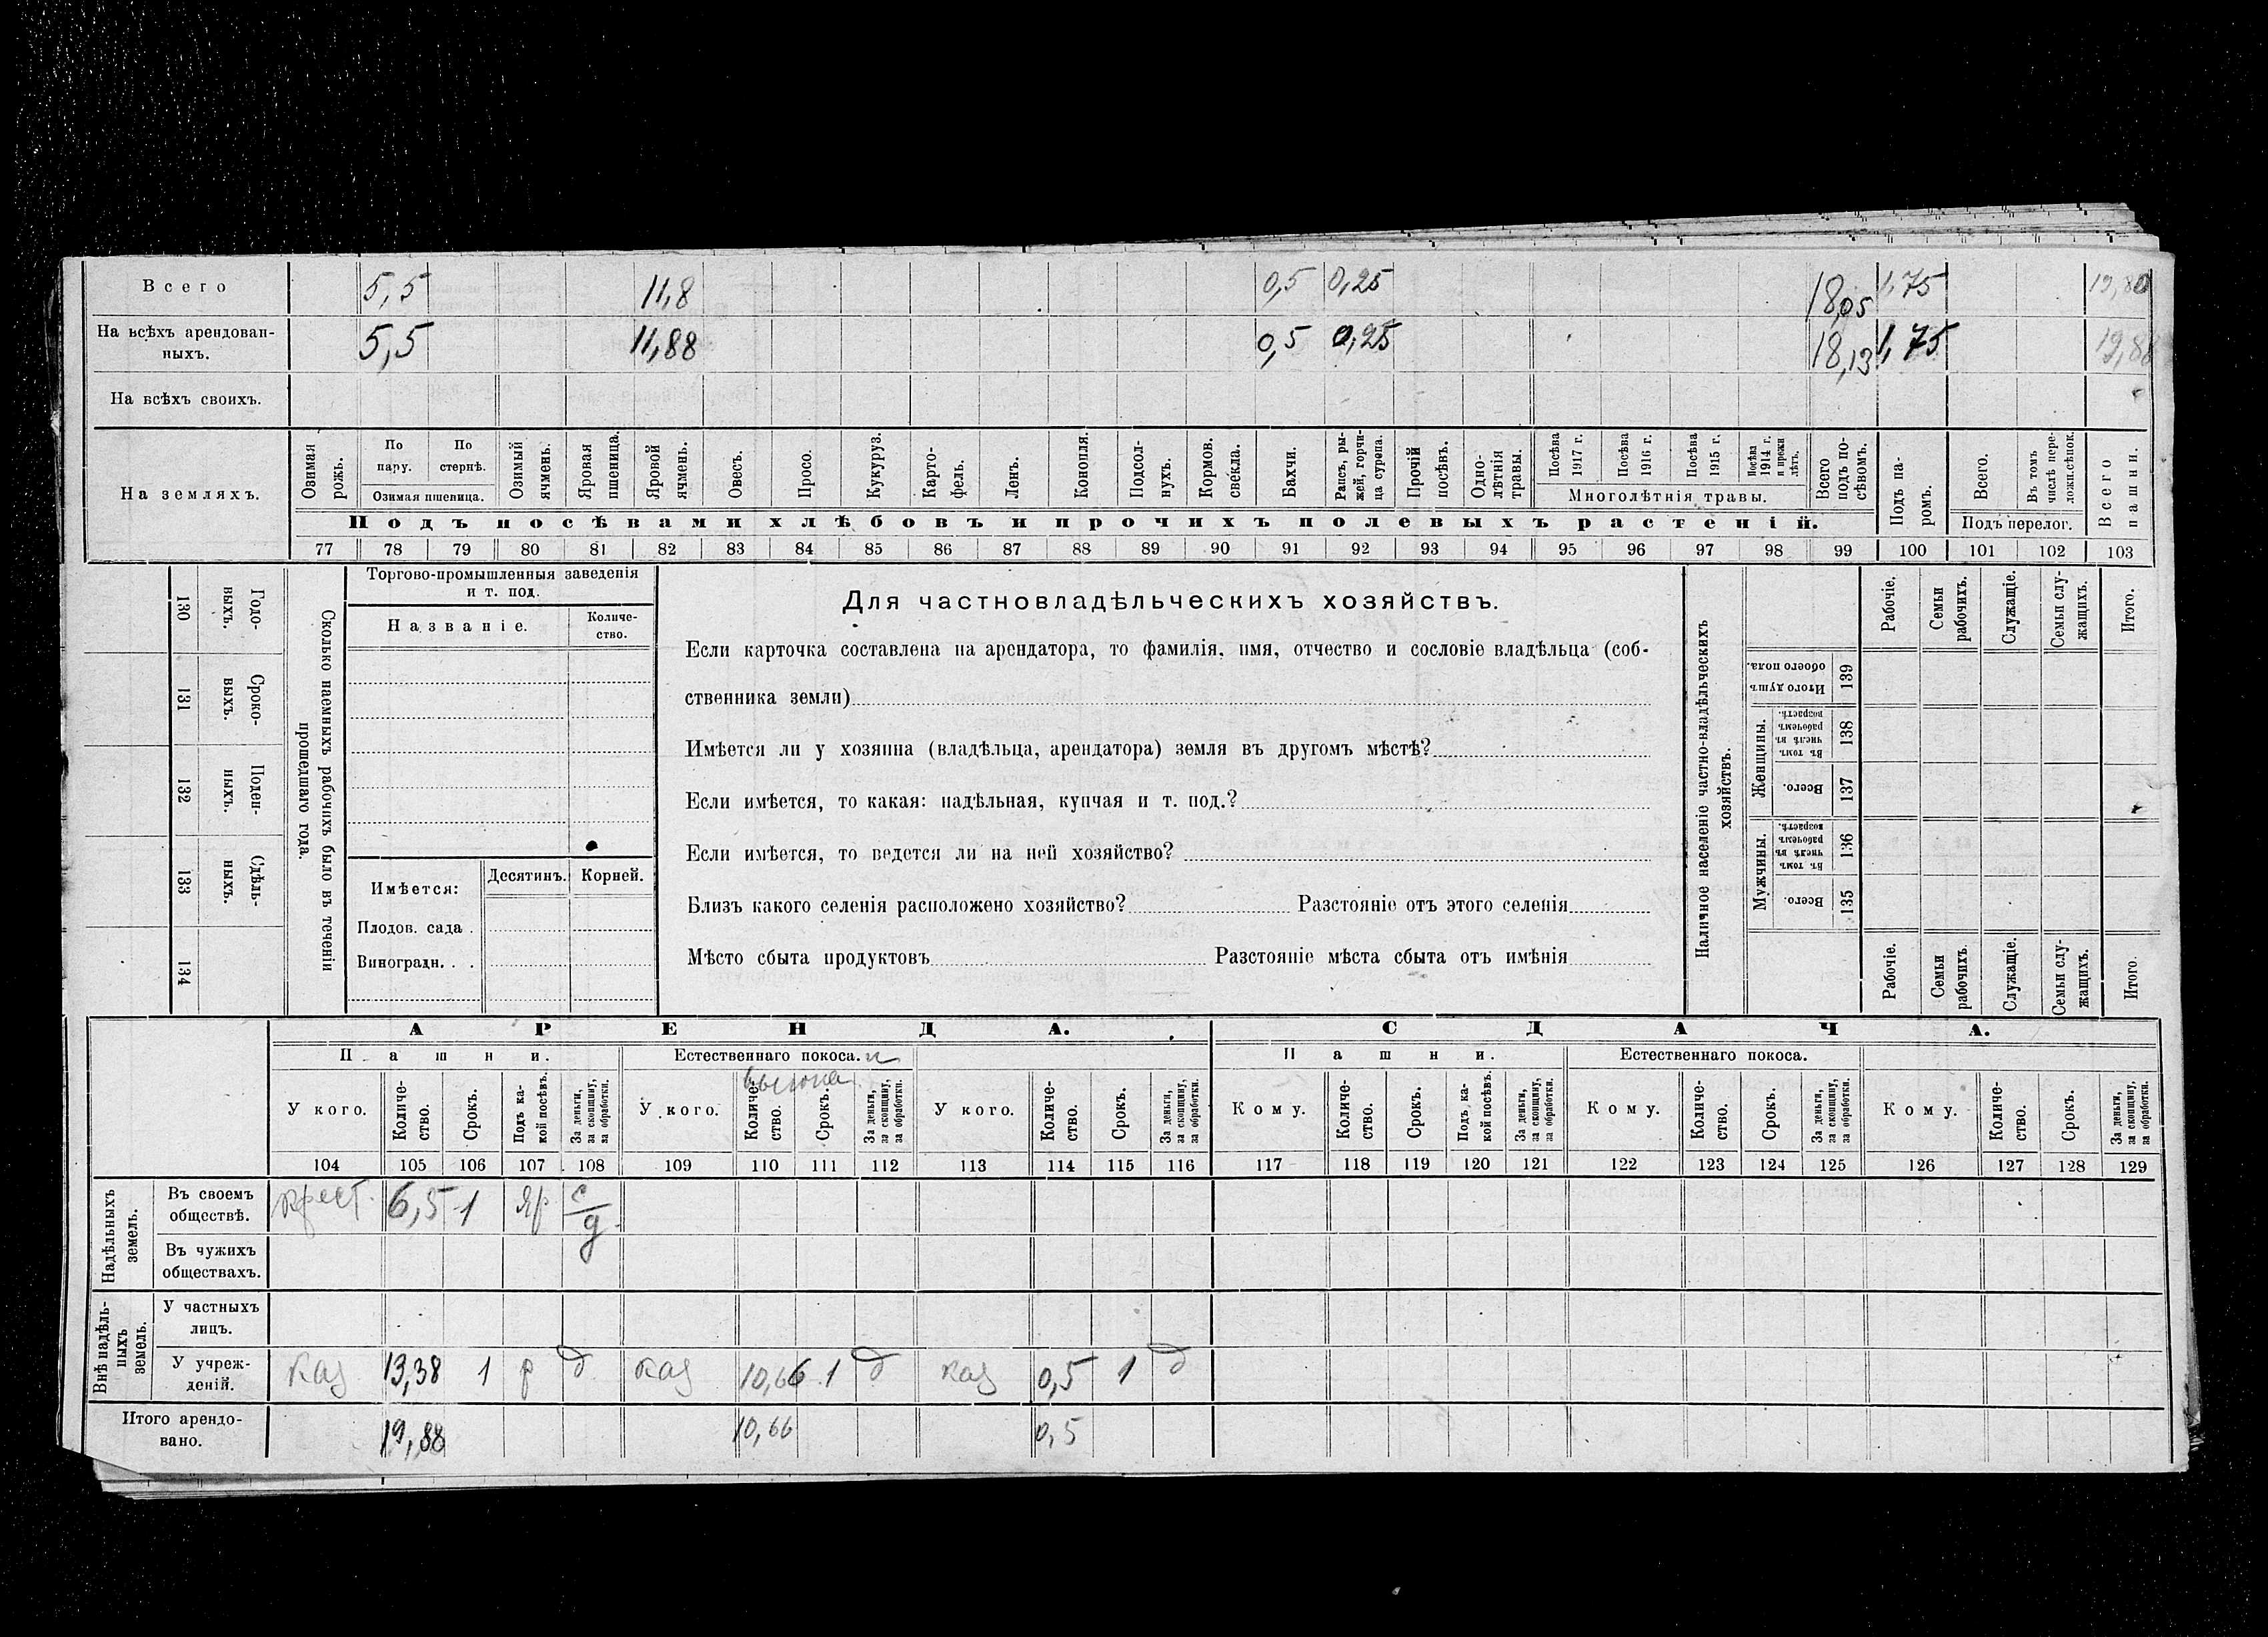 Всего 5,5 11,8 0,5 0,25 18,05 1,75 19,80
На всѣхъ арендован-
ныхъ. 5,5 11,88 0,5 0,25 18,13 1,75 19,88
На всѣхъ своихъ.
На земляхъ.
Озимая рожь.
По пару.
По стернѣ.
Озимая пшеница.
Озимый ячмень.
Яровая пшеница.
Яровой ячмень.
Овесъ.
Просо.
Кукуруз.
Карто-
фель.
Ленъ.
Конопля.
Подсол-
нухъ.
Кормов. свёкла.
Бахчи.
Рапсъ, ры-
жей, горчи-
ца сурепа.
Прочій посѣвъ.
Одно-
лѣтнія травы.
Посѣва 1917 г.
Посѣва 1916 г.
Посѣва 1915 г.
Посѣва 1914 г. и прежн лѣтъ.
Многолѣтнія травы.
Всего подъ по-
сѣвомъ.
Подъ па-
ромъ.
Всего.
Въ томъ числѣ пере-
ложн.сѣнок.
Подъ перелог.
Всего пашни.
Подъ посѣвами хлѣбовъ и прочихъ полевыхъ растеній.
77 78 79 80 81 82 83 84 85 86 87 88 89 90 91 92 93 94 95 96 97 98 99 100 101 102 103
130 Годо-
выхъ.
131 Сроко-
выхъ.
132 Поден-
ныхъ.
133 Сдѣль-
ныхъ.
134
Сколько наемныхъ рабочихъ было въ теченіи
прошедшаго года.
Торгово-промышленныя заведенія
и т. под.
Названіе.
Количе-
ство.
Имѣется:
Десятинъ. Корней.
Плодов. сада .
Виноградн. . .
Для частновладѣльческихъ хозяйствъ.
Если карточка составлена на арендатора, то фамилія, имя, отчество и сословіе владѣльца (соб-
ственника земли)
Имѣется ли у хозяина (владѣльца, арендатора) земля въ другомъ мѣстѣ?
Если имѣется, то какая: надѣльная, купчая и т. под.?
Если имѣется, то ведется ли на ней хозяйство?
Близъ какого селенія расположено хозяйство? Разстояніе отъ этого селенія
Мѣсто сбыта продуктовъ Разстояніе мѣста сбыта отъ имѣнія
Наличное населеніе частно-владѣльческихъ
хозяйствъ.
Рабочіе.
Семьи рабочихъ.
Служащіе.
Семьи слу-
жащихъ.
Итого.
Итого душъ обоего пола. 139
Женщины.
Въ томъ числѣ въ рабочемъ возрастѣ. 138
Всего. 137
Мужчины.
Въ томъ числѣ въ рабочемъ возрастѣ. 136
Всего. 135
Рабочіе.
Семьи рабочихъ
Служащіе.
Семьи слу-
жащихъ.
Итого.
АРЕНДА. СДАЧА.
Пашни. Естественнаго покоса. и
выгона
Пашни. Естественнаго покоса.
У кого.
Количе-
ство.
Срокъ.
Подъ ка-
кой посѣвъ.
За деньги, за скопщину, за обработки.
У кого.
Количе-
ство.
Срокъ.
За деньги, за скопщину, за обработки.
У кого.
Количе-
ство.
Срокъ.
За деньги, за скопщину, за обработки.
Кому.
Количе-
ство.
Срокъ.
Подъ ка-
кой посѣвъ.
За деньги, за скопщину, за обработки.
Кому.
Количе-
ство.
Срокъ.
За деньги, за скопщину, за обработки.
Кому.
Количе-
ство.
Срокъ.
За деньги, за скопщину, за обработки.
104 105 106 107 108 109 110 111 112 113 114 115 116 117 118 119 120 121 122 123 124 125 126 127 128 129
Надѣльныхъ земель.
Въ своемъ
обществѣ. крест. 6,5 1 яр с/д
Въ чужихъ
обществахъ.
Внѣ надѣль-
ныхъ земель.
У частныхъ
лицъ.
У учреж-
деній. каз 13,38 1 р д каз 10,66 1 д каз 0,5 1 д
Итого арендо-
вано. 19,88 10,66 0,5